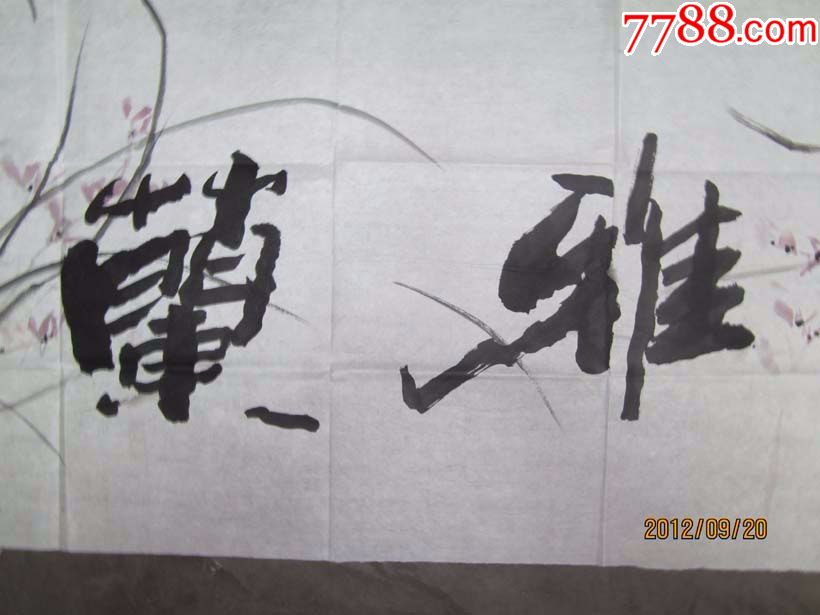 7788.com
雅蘭
2012/09/20